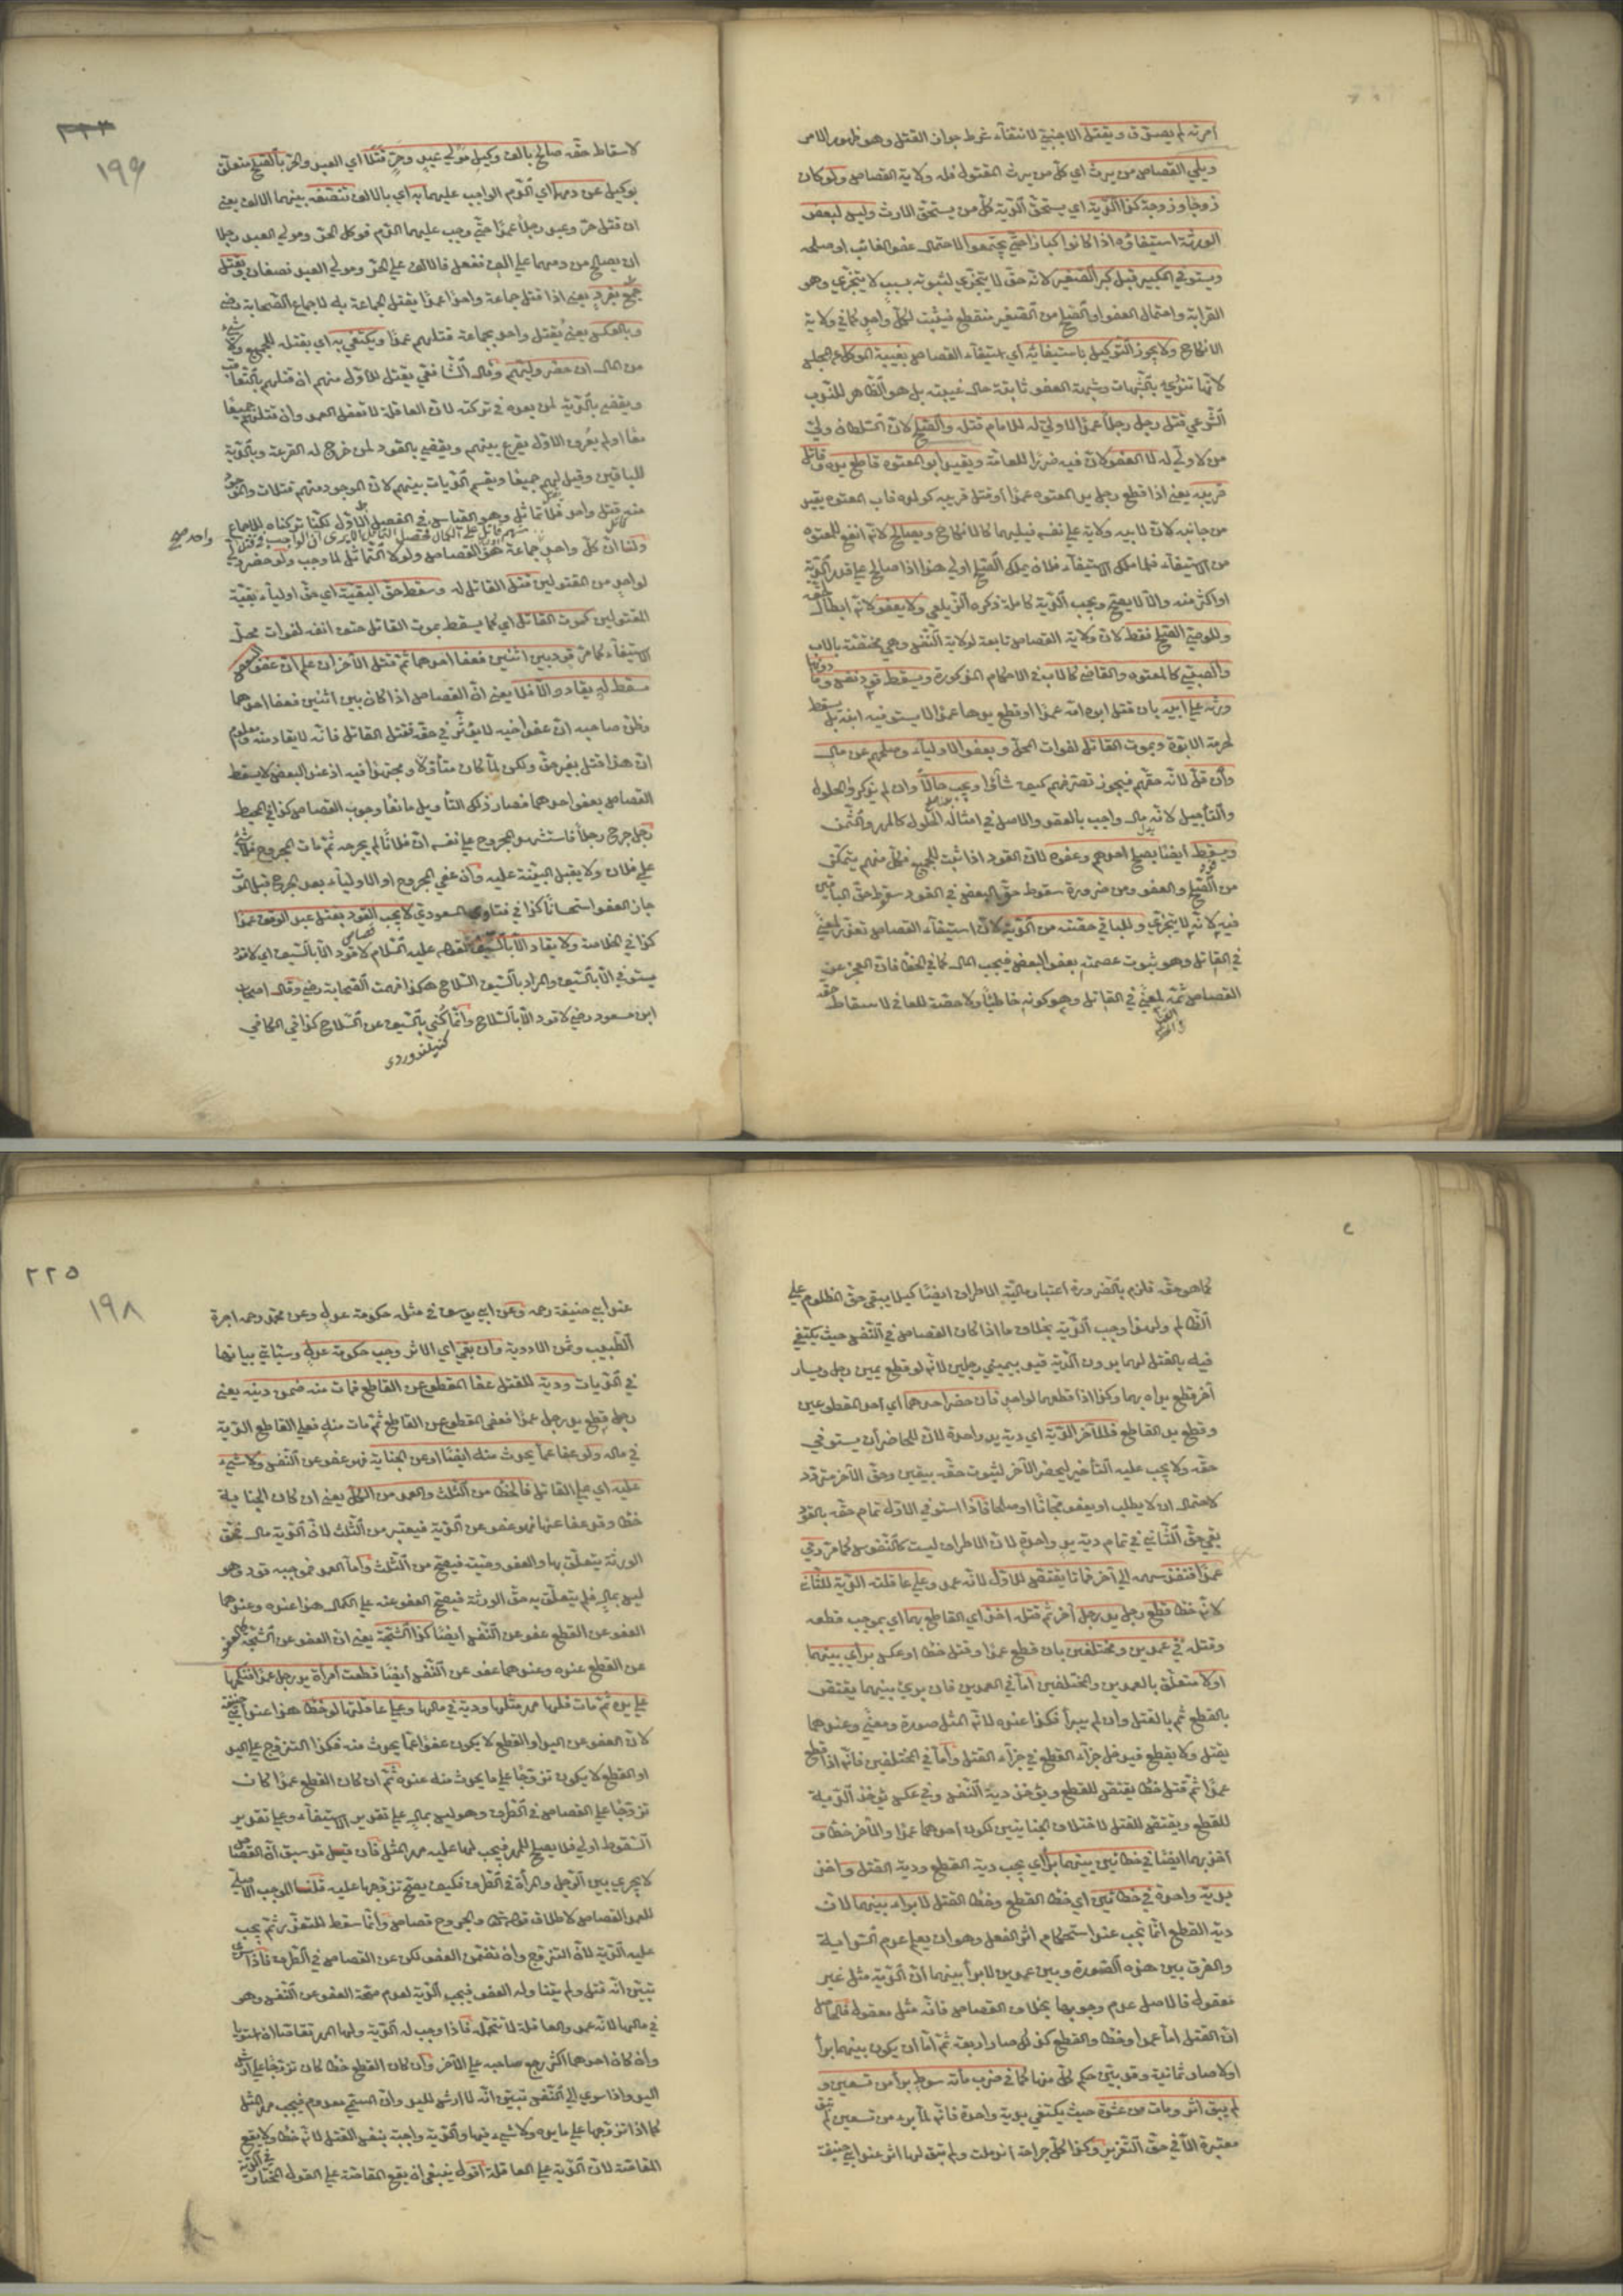 أمرته لم يصدق ويقتل الاجنبي لانتفاء شرط جواز القتل وهو ظهور الامر
ويلي القصاص من يرث اي كل من يرث المقتول فله ولاية القصاص ولو كان
زوجا وزوجة كذا الدية اي يستحق الدية كل من يستحق الارث وليس لبعض
الورثة استيفاؤه اذا كانوا كبارا حتى يجتمعوا لاحتمال عفو الغائب او صلحه
ويستوفي الكبير قبل كبر الصغير لانه حق لا يتجزى لثبوته بسبب لا يتجزى وهو
القرابة واحتمال العفو او الصلح من الصغير منقطع فيثبت لكل واحد كما في ولاية
الانكاح ولا يجوز التوكيل باستيفائه اي استيفاء القصاص بغيبة الموكل عن المجلس
لانها تندرئ بالشبهات وشبهة العفو ثابتة حال غيبته بل هو الظاهر للندب
الشرعي قتل رجل رجلا عمدا لا ولي له للامام قتله والصلح لان السلطان ولي
من لا ولي له لا العفو لان فيه ضررا للعامة ويقيد ابو المعتوه قاطع يده وقاتل
قريبه يعني اذا قطع رجل يد المعتوه عمدا او قتل قريبه كولده فاب المعتوه يقيد
من جانبه لان لابيه ولاية على نفسه فيليهما كالانكاح ويصالح لانه انفع للمعتوه
من الاستيفاء فلما ملك الاستيفاء فلان يملك الصلح اولى هذا اذا صالح على قدر الدية
او اكثر منه والا لا يصح ويجب الدية كاملة ذكره الزيلعي ولا يعفو لانه ابطال لحقه
وللوصي الصلح فقط لان ولاية القصاص تابعة لولاية النفس وهي مختصة بالاب
والصبي كالمعتوه والقاضي كالاب في الاحكام المذكورة ويسقط قود نفس وما دونها
ورثه على ابيه بان قتل ابوه امه عمدا او قطع يدها عمدا لا يستوفيه ابنه بل يسقط
لحرمة الابوة وبموت القاتل لفوات المحل وبعفو الاولياء وصلحهم عن مال
وان قل لانه حقهم فيجوز تصرفهم كيف شاؤا ويجب حالا وان لم يذكروا الحلول
والتأجيل لانه مال واجب بالعقد والاصل في امثاله الحلول كالمهر والثمن
ويسقط ايضا بصلح احدهم وعفوه لان القود اذا ثبت للجميع فكل منهم يتمكن
من الصلح والعفو ومن ضرورة سقوط حق البعض في القود سقوط حق الباقين
فيه لانه لا يتجزى وللباقي حصته من الدية لان استيفاء القصاص تعذر لمعنى
في القاتل وهو ثبوت عصمته بعفو البعض فيجب المال كما في الخطأ فان العجز عن
القصاص ثمه لمعنى في القاتل وهو كونه خاطئا ولا حصة للعافي لاسقاطه حقه
٣٣٣
١٩٩
لاسقاط حقه صالح بالف وكيل مولى عبد وحر قتلا اي العبد والحر بالصلح متعلق
بوكيل عن دمهما اي الدم الواجب عليهما به اي بالالف تنصفه بينهما الالف يعني
ان قتل حر وعبد رجلا عمدا حتى وجب عليهما الدم فوكل الحر ومولى العبد رجلا
ان يصالح من دمهما على الف ففعل فالالف على الحر ومولى العبد نصفان ويقتل
جمع بفرد يعني اذا قتل جماعة واحدا عمدا يقتل الجماعة به لاجماع الصحابة رضي
وبالعكس يعني يقتل واحد بجماعة قتلهم عمدا ويكتفى به اي بقتله للجميع ولا شيء
من المال ان حضر وليهم وقال الشافعي يقتل للاول منهم ان قتلهم بالتعاقب
ويقضى بالدية لمن بعده في تركته لان العاقلة لا تعقل العمد وان قتلهم جميعا
معا او لم يعرف الاول يقرع بينهم ويقضى بالقود لمن خرج له القرعة وبالدية
للباقين وقيل لهم جميعا ويقسم الديات بينهم لان الموجود منهم قتلات والموجود
منه قتل واحد فلا تماثل وهو القياس في الفصل الاول لكنا تركناه للاجماع
ولنا ان كل واحد منهم قاتل على الكمال فحصل التماثل الا يرى ان الواجب في قتل واحد صح
جماعة هو القصاص ولولا التماثل لما وجب ولو حضر ولي
لواحد من المقتولين قتل القاتل له وسقط حق البقية اي حق اولياء بقية
المقتولين كموت القاتل اي كما يسقط بموت القاتل حتف انفه لفوات محل
الاستيفاء كما مر قود بين اثنين فعفا احدهما ثم قتل الآخر ان علم ان عفو البعض
مسقط له يقاد والا فلا يعني ان القصاص اذا كان بين اثنين فعفا احدهما
وظن صاحبه ان عفو اخيه لا يؤثر في حقه فقتل القاتل فانه لا يقاد منه ومعلوم
ان هذا قتل بغير حق ولكن لما كان متأولا ومجتهدا فيه اذ عند البعض لا يسقط
القصاص بعفو احدهما فصار ذلك التأويل مانعا وجوب القصاص كذا في المحيط
رجل جرح رجلا فاستشهد المجروح على نفسه ان فلانا لم يجرحه ثم مات المجروح فلا شيء
على فلان ولا يقبل البينة عليه وان عفى المجروح او الاولياء بعد الجرح قبل الموت
جاز العفو استحسانا كذا في فتاوى المسعودي لا يجب القود بقتل عبد الوقف عمدا
كذا في الخلاصة ولا يقاد الا بالسيف لقوله عليه السلام لا قود الا بالسيف اي لا قود
يستوفى الا بالسيف والمراد بالسيف السلاح هكذا فهمت الصحابة رضي وقال اصحاب
ابن مسعود رضي لا قود الا بالسلاح وانما كنى بالسيف عن السلاح كذا في الكافي
كما هو حقه فلزم بالضرورة اعتبار مالية الاطراف ايضا كيلا يبقى حق المظلوم على
الظالم ولهذا وجب الدية بخلاف ما اذا كان القصاص في النفس حيث يكتفي
فيه بالقتل لهما بدون الدية قيد بيميني رجلين لانه لو قطع يمين رجل ويسار
آخر قطع يداه بهما وكذا اذا قطعهما لواحد فان حضر احدهما اي احد المقطوعين
وقطع يد القاطع فللآخر الدية اي دية يد واحدة لان للحاضر ان يستوفي
حقه ولا يجب عليه التأخير ليحضر الآخر لثبوت حقه بيقين وحق الآخر متردد
لاحتمال ان لا يطلب او يعفو مجانا او صلحا فاذا استوفى الاول تمام حقه بالقود
بقي حق الثاني في تمام دية يد واحدة لان الاطراف ليست كالنفوس كما مر رمى
عمدا فنفذ سهمه الى آخر فماتا يقتص للاول لانه عمد وعلى عاقلته الدية للثاني
لانه خطأ قطع رجل يد رجل آخر ثم قتله اخذ اي القاطع بهما اي بموجب قطعه
وقتله في عمدين ومختلفين بان قطع عمدا وقتل خطأ او عكس برأ اي بينهما
اولا متعلق بالعمدين والمختلفين اما في العمدين فان برئ بينهما يقتص
بالقطع ثم بالقتل وان لم يبرأ فكذا عنده لانه المثل صورة ومعنى وعندهما
يقتل ولا يقطع فيدخل جزاء القطع في جزاء القتل واما في المختلفين فانه اذا قطع
عمدا ثم قتل خطأ يقتص للقطع ويؤخذ دية النفس وفي عكسه يؤخذ الدية
للقطع ويقتص للقتل لاختلاف الجنايتين لكون احدهما عمدا والآخر خطأ
اخذ بهما ايضا في خطائين بينهما برأ اي يجب دية القطع ودية القتل واخذ
بدية واحدة في خطائين اي خطأ القطع وخطأ القتل لا برأ بينهما لان
دية القطع انما تجب عند استحكام اثر الفعل وهو ان يعلم عدم السراية
والفرق بين هذه الصورة وبين عمدين لا برأ بينهما ان الدية مثل غير
معقول فالاصل عدم وجوبها بخلاف القصاص فانه مثل معقول فالحاصل
ان القتل اما عمدا وخطأ والقطع كذلك صار اربعة ثم اما ان يكون بينهما برأ
اولا صار ثمانية وقد بين حكم كل منها كما في ضرب مائة سوط برأ من تسعين و
لم يبق اثر ومات من عشرة حيث يكتفي بدية واحدة فانه لما برء من تسعين لم تبق
معتبرة الا في حق التعزير وكذا كل جراحة اندملت ولم تبق لها اثر عند ابي حنيفة
٢٢٥
١٩٨
عند ابي حنيفة رحمه وعن ابي يوسف في مثله حكومة عدل وعن محمد رحمه اجرة
الطبيب وثمن الادوية وان بقي اي الاثر وجب حكومة عدل وسيأتي بيانها
في الديات ودية للقتل عفا المقطوع عن القاطع فمات منه ضمن ديته يعني
رجل قطع يد رجل عمدا فعفى المقطوع عن القاطع ثم مات منه فعلى القاطع الدية
في ماله ولو عفا عما يحدث منه ايضا او عن الجناية فهو عفو عن النفس ولا شيء
عليه اي على القاتل فالخطأ من الثلث والعمد من الكل يعني ان كان الجناية
خطأ وقد عفا عنها فهو عفو عن الدية فيعتبر من الثلث لان الدية مال فحق
الورثة يتعلق بها والعفو وصية فيصح من الثلث واما العمد فموجبه قود وهو
ليس بمال فلم يتعلق به حق الورثة فيصح العفو عنه على الكمال هذا عنده وعندهما
العفو عن القطع عفو عن النفس ايضا كذا الشجة يعني ان العفو عن الشجة كالعفو
عن القطع عنده وعندهما عفو عن النفس ايضا قطعت امرأة يد رجل عمدا فنكحها
على يده ثم مات فلها مهر مثلها ودية في مالها وعلى عاقلتها لو خطأ هذا عند ابي حنيفة
لان العفو عن اليد او القطع لا يكون عفوا عما يحدث منه فكذا التزوج على اليد
او القطع لا يكون تزوجا على ما يحدث منه عنده ثم ان كان القطع عمدا كان
تزوجا على القصاص في الطرف وهو ليس بمال على تقدير الاستيفاء وعلى تقدير
السقوط اولى فلا يصلح للمهر فيجب لها عليه مهر المثل فان قيل قد سبق ان القصاص
لا يجري بين الرجل والمرأة في الطرف فكيف يصح تزوجها عليه قلنا الموجب الاصلي
للعمد القصاص لاطلاق قوله والجروح قصاص وانما سقط للتعذر ثم يجب
عليه الدية لان التزوج وان تضمن العفو لكن عن القصاص في الطرف فاذا سرى
تبين انه قتل ولم يتناوله العفو فيجب الدية لعدم صحة العفو عن النفس وهو
في مالها لانه عمد والعاقلة لا تتحمله فاذا وجب له الدية ولها المهر تقاصا ان استويا
وان كان احدهما اكثر رجع صاحبه على الآخر وان كان القطع خطأ كان تزوجا على ارش
اليد واذا سرى الى النفس تبين انه لا ارش لليد وان المسمى معدوم فيجب مهر المثل
كما اذا تزوجها على ما يده ولا شيء فيها والدية واجبة بنفس القتل لانه خطأ ولا يقع
المقاصة لان الدية على العاقلة اقول ينبغي ان يقع المقاصة على القول المختار في الدية